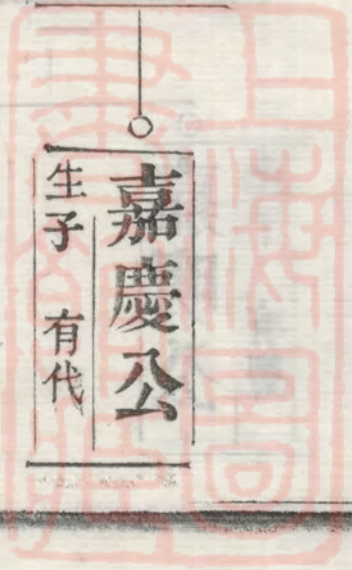 嘉慶公
生子　有代